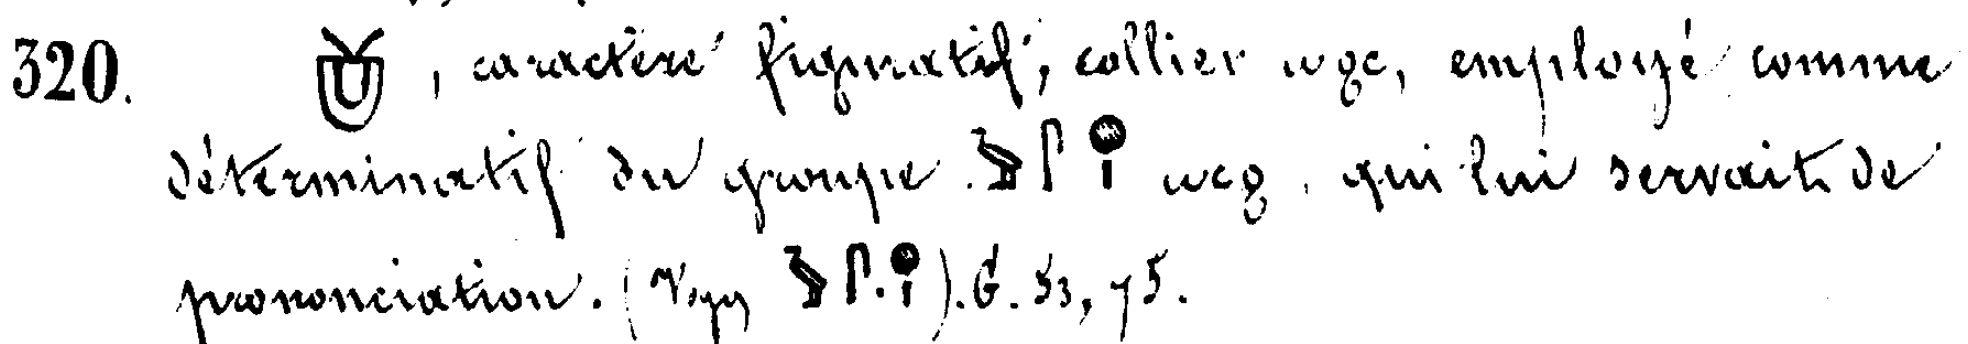 320. 𓋫, caractère figuratif, collier ⲱϩⲥ, employé comme
déterminatif du groupe 𓅱𓋴𓐍 ⲱⲥϩ, qui lui servait de
prononciation. (Voyez 𓅱𓋴.𓐍). G. 53, 75.